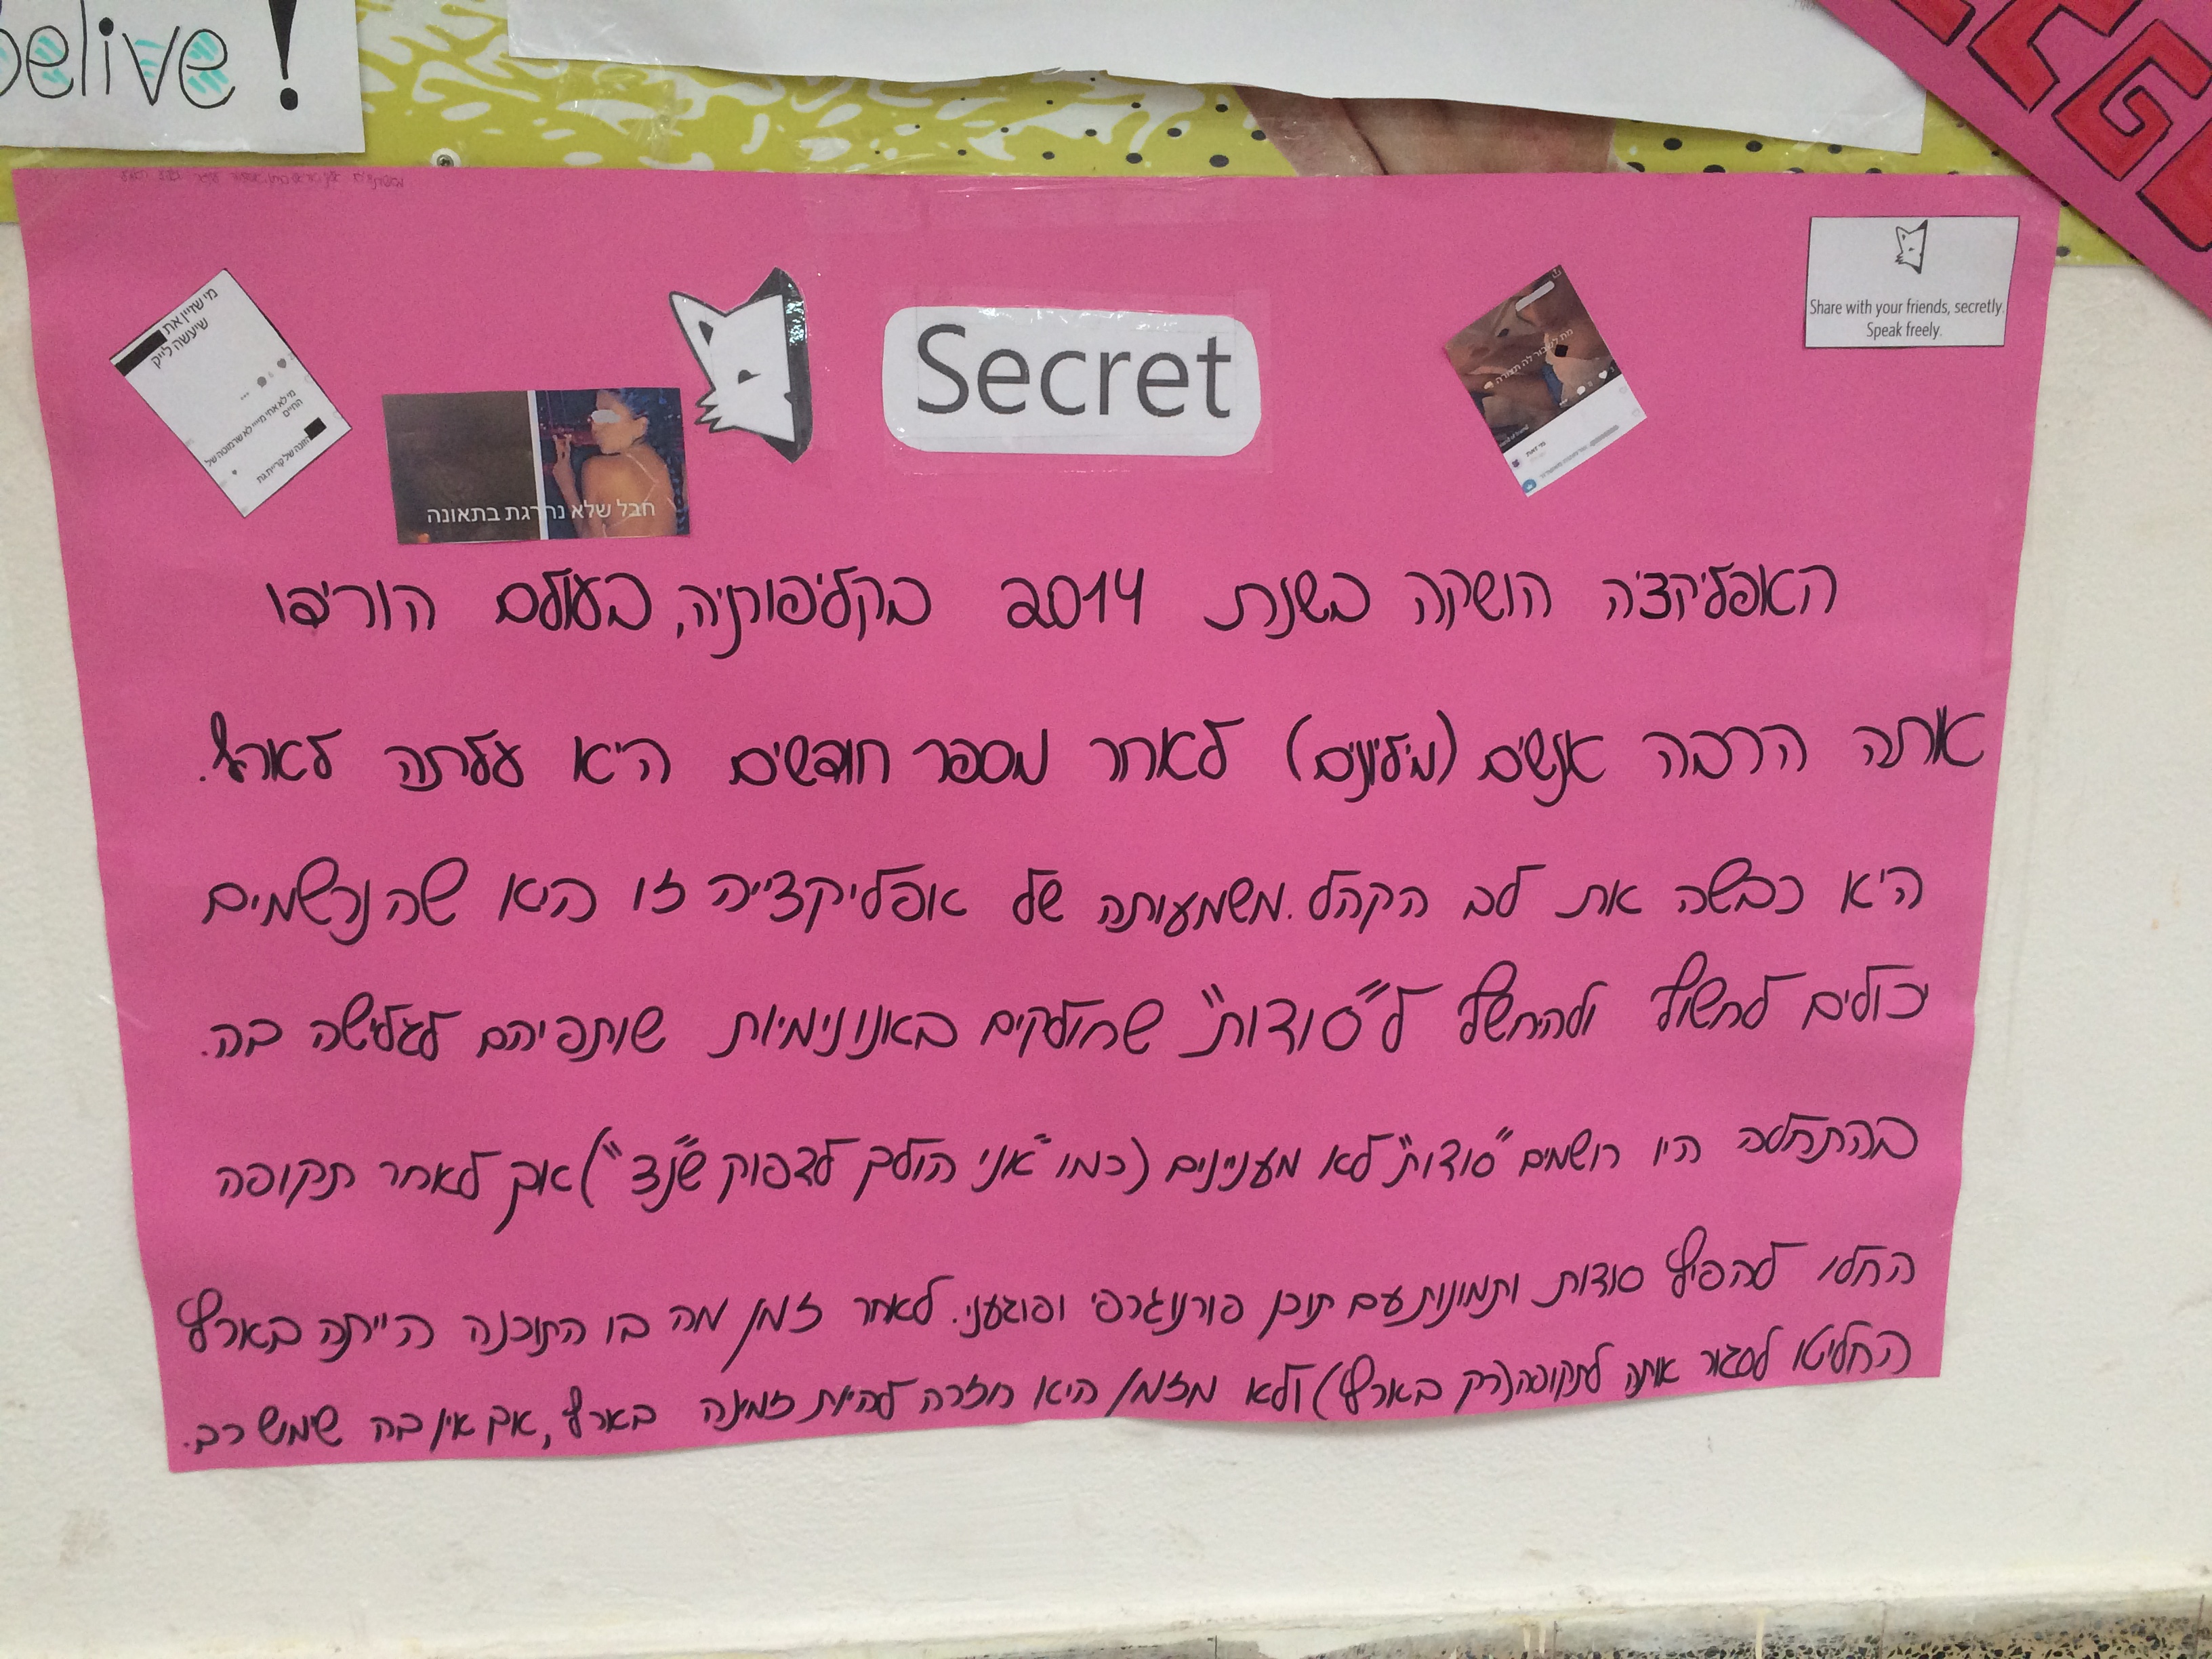 belive!
Secret
Share with your friends, secretly.
Speak freely.
מי שזיין את
שיעשה לייק
חבל שלא נהרגת בתאונה
האפליקציה הושקה בשנת 2014 בקליפורניה, בעולם הורידו
אותה הרבה אנשים (מיליונים) לאחר מספר חודשים היא עלתה לארץ.
היא כבשה את לב הקהל. משמעותה של אפליקצייה זו היא שהנרשמים
יכולים לחשוף ולהיחשף ל"סודות" שחולקים באנונימיות שותפיהם לגלישה בה.
בהתחלה היו רושמים "סודות" לא מעניינים (כמו "אני הולך לדפוק שנ"צ") אך לאחר תקופה
החלו להפיץ סודות ותמונות עם תוכן פורנוגרפי ופוגעני. לאחר זמן מה בו התוכנה הייתה בארץ
החליטו לסגור אותה לתקופה (רק בארץ) ולא מזמן היא חזרה להיות זמינה בארץ, אך אין בה שימוש רב.